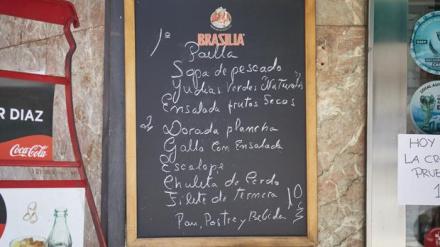 BRASILIA
1º
Paella
Sopa de pescado
Yudias Verdes Naturón
Ensalada frutos Secos
2º
Dorada plancha
Gallo con Ensalada
Escalope
Chuleta de Cerdo
Filete de Ternera
10
Pan, Postre y Bebida
R DIAZ
Coca-Cola
HOY
LA CE
PRUE
1